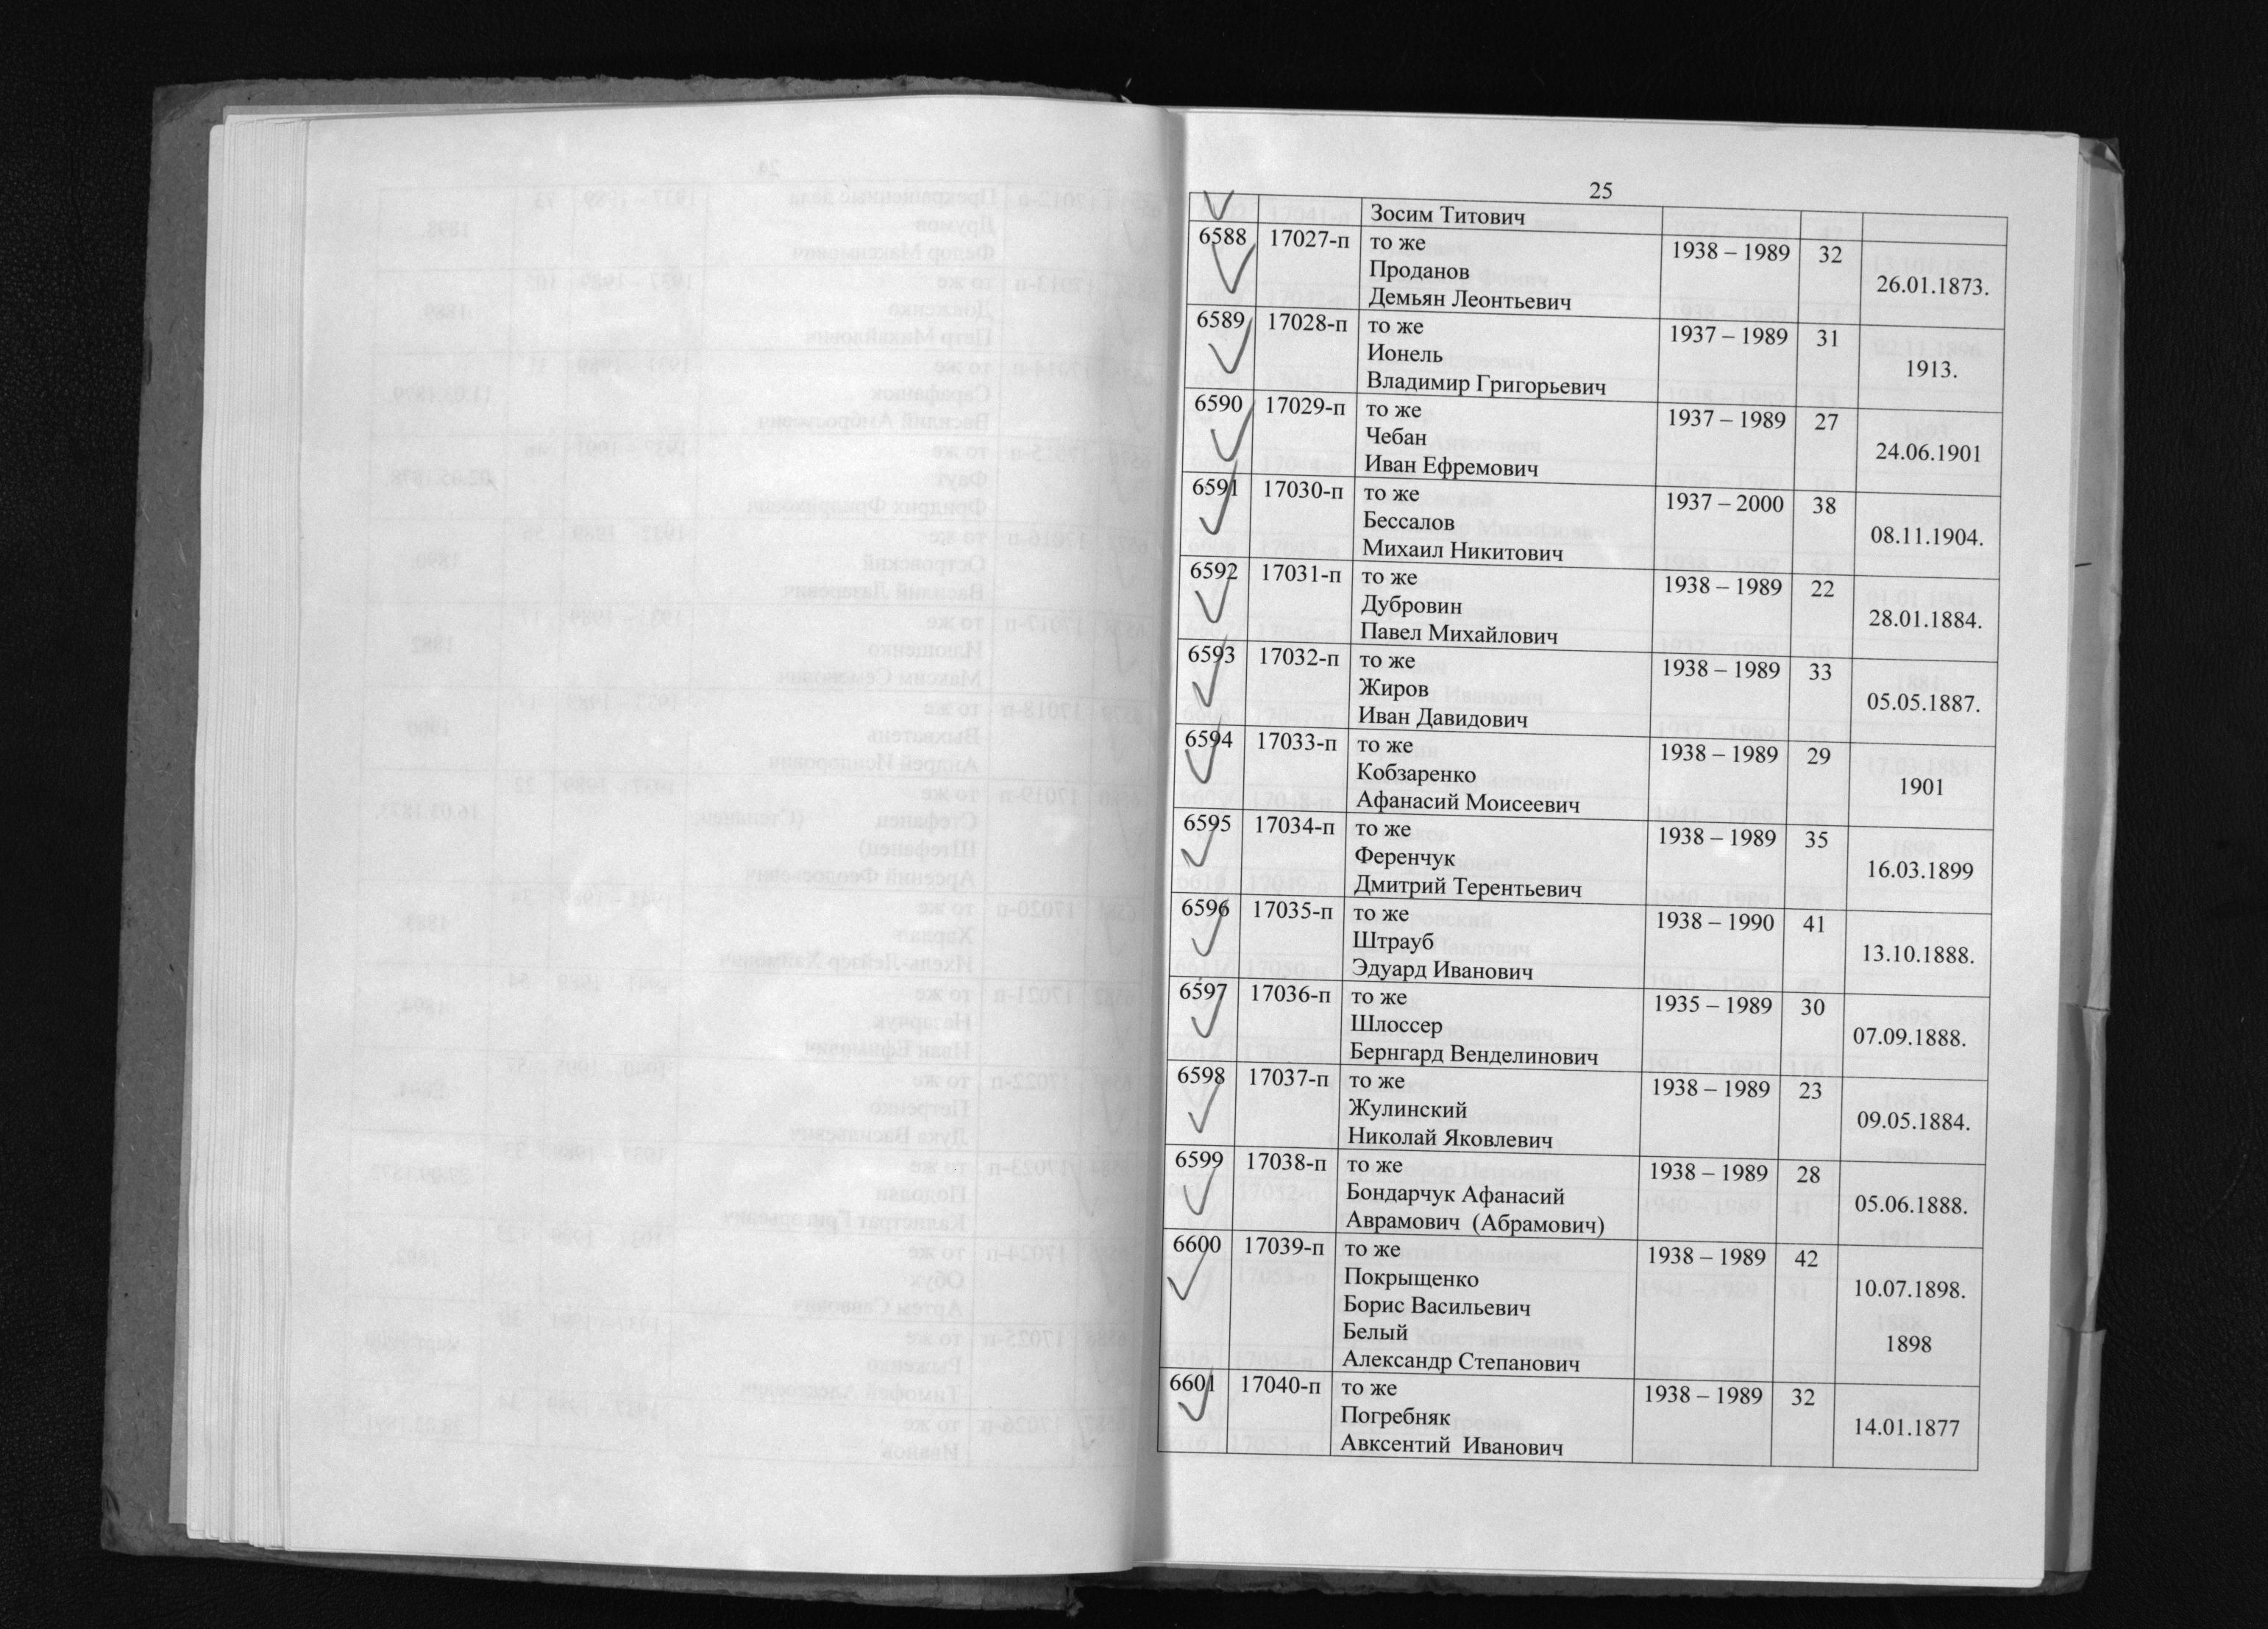 25
Зосим Титович
6588 17027-п то же 1938 – 1989 32
Проданов 26.01.1873.
Демьян Леонтьевич
6589 17028-п то же 1937 – 1989 31
Ионель 1913.
Владимир Григорьевич
6590 17029-п то же 1937 – 1989 27
Чебан 24.06.1901
Иван Ефремович
6591 17030-п то же 1937 – 2000 38
Бессалов 08.11.1904.
Михаил Никитович
6592 17031-п то же 1938 – 1989 22
Дубровин 28.01.1884.
Павел Михайлович
6593 17032-п то же 1938 – 1989 33
Жиров 05.05.1887.
Иван Давидович
6594 17033-п то же 1938 – 1989 29
Кобзаренко 1901
Афанасий Моисеевич
6595 17034-п то же 1938 – 1989 35
Ференчук 16.03.1899
Дмитрий Терентьевич
6596 17035-п то же 1938 – 1990 41
Штрауб 13.10.1888.
Эдуард Иванович
6597 17036-п то же 1935 – 1989 30
Шлоссер 07.09.1888.
Бернгард Венделинович
6598 17037-п то же 1938 – 1989 23
Жулинский 09.05.1884.
Николай Яковлевич
6599 17038-п то же 1938 – 1989 28
Бондарчук Афанасий 05.06.1888.
Аврамович (Абрамович)
6600 17039-п то же 1938 – 1989 42
Покрыщенко 10.07.1898.
Борис Васильевич
Белый 1898
Александр Степанович
6601 17040-п то же 1938 – 1989 32
Погребняк 14.01.1877
Авксентий Иванович